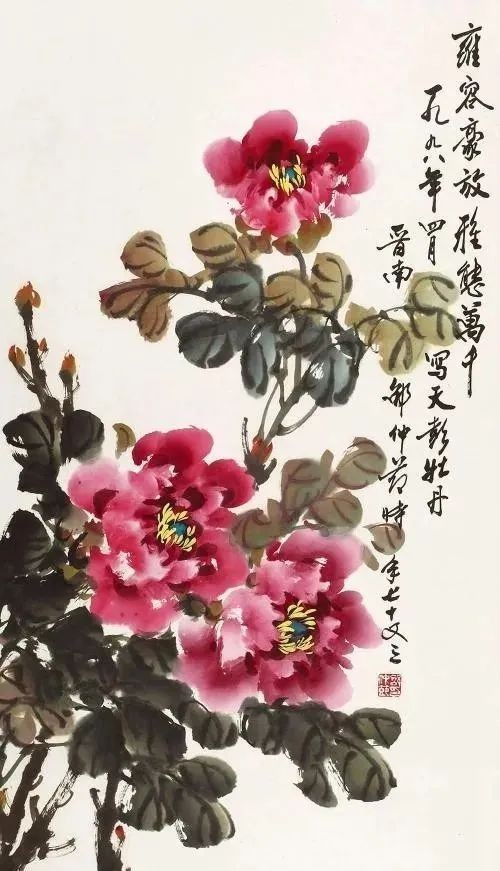 雍容豪放雅態萬千
一九九八年四月 寫天彭牡丹
晋南 邵仲节時年七十又三